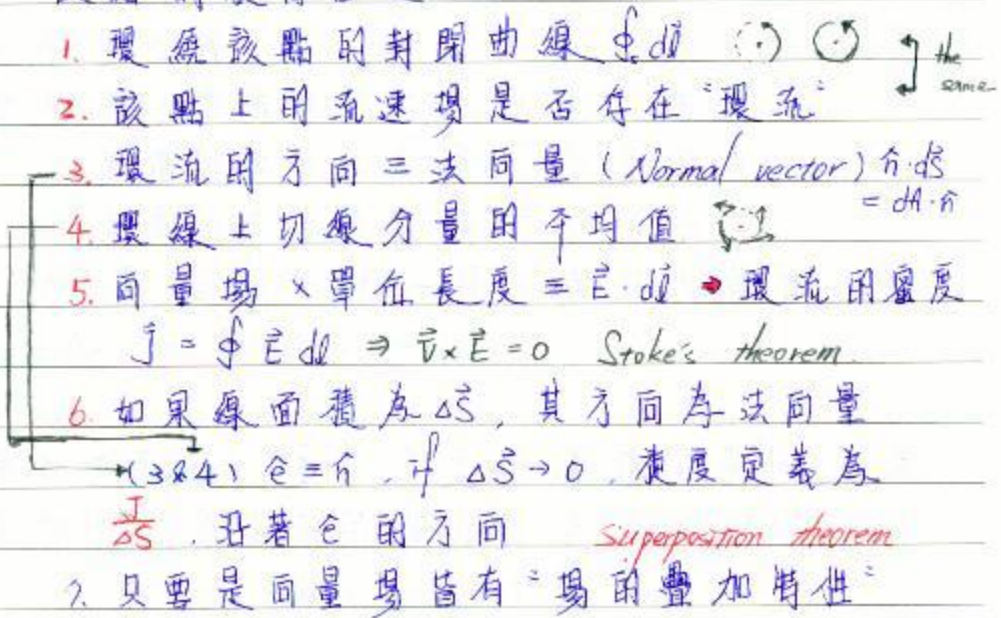 1. 環繞該點的封閉曲線 ∮c dl⃗ the same
2. 該點上的流速場是否存在"環流"
3. 環流的方向≡法向量 (Normal vector) n̂·dS⃗
= dA·n̂
4. 環線上切線分量的平均值
5. 向量場×單位長度≡E⃗·dl⃗ → 環流的密度
J⃗ = ∮ E⃗ dl ⇒ ∇⃗×E⃗ = 0 Stoke's theorem.
6. 如果線面積為ΔS⃗, 其方向為法向量
(3&4) ê≡n̂, if ΔS⃗→0, 度定義為
J/ΔS, 沿著ê的方向 superposition theorem
7. 只要是向量場皆有"場的疊加特性"